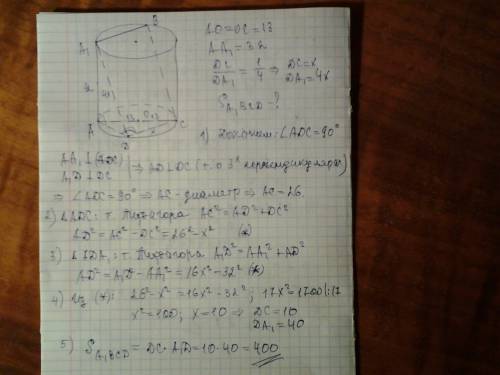 B
A₁
AO = OC = 13
AA₁ = 32
DC/DA₁ = 1/4 ⇒ DC = x
DA₁ = 4x
S A₁BCD - ?
A
C
D
1) ∠ADC = 90°
AA₁ ⊥ (ADC)
A₁D ⊥ DC
⇒ AD ⊥ DC (т. о 3ˣ перпендикулярах)
⇒ ∠ADC = 90° ⇒ AC - диаметр ⇒ AC = 26.
2) ΔADC: т. Пифагора AC² = AD² + DC²
AD² = AC² - DC² = 26² - x² (*)
3) ΔADA₁: т. Пифагора A₁D² = AA₁² + AD²
AD² = A₁D² - AA₁² = 16x² - 32² (*)
4) Из (*): 26² - x² = 16x² - 32²; 17x² = 1700 |:17
x² = 100; x = 10 ⇒ DC = 10
DA₁ = 40
5) S A₁BCD = DC · A₁D = 10 · 40 = 400